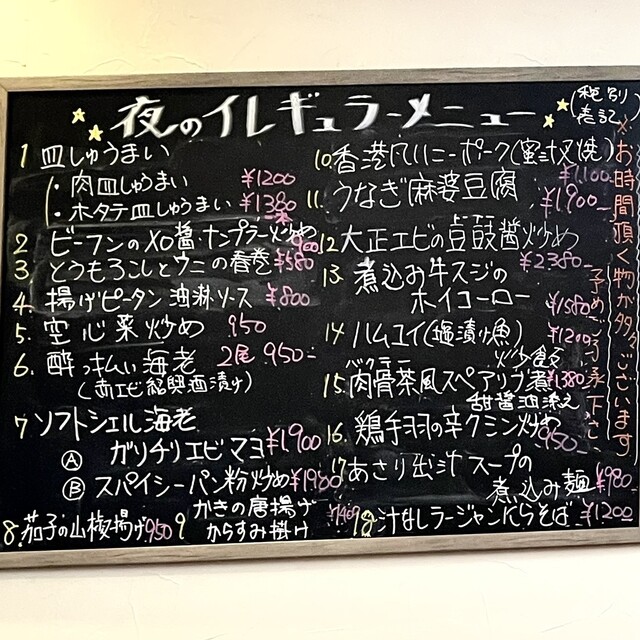 夜のイレギュラーメニュー
(税別表記)
1 皿しゅうまい
・肉皿しゅうまい ¥1200
・ホタテ皿しゅうまい ¥1380
2 ビーフンのXO醤・ナンプラー炒め 900
3 とうもろこしとウニの春巻 ¥580
4. 揚げピータン 油淋ソース ¥800
5. 空心菜炒め 950
6. 酔っ払い海老 2尾 950-
(赤エビ紹興酒漬け)
7 ソフトシェル海老
Ⓐ ガリチリエビマヨ ¥1,900
Ⓑ スパイシーパン粉炒め ¥1980
8. 茄子の山椒揚げ 950
9 かきの唐揚げ
からすみ掛け
10. 香港ハニーポーク(蜜汁叉焼) ¥1,100-
11. うなぎ麻婆豆腐 ¥1,900-
12 大正エビの豆鼓醤炒め ¥2,380-
13 煮込お牛スジの
ホイコーロー ¥1580
14 ハムユイ(塩漬け魚) ¥1200
炒飯
15. 肉骨茶風スペアリブ煮 ¥1380
バクテー
甜醤油添え
16. 鶏手羽の辛クミン炒め 950-
17 あさり出汁スープの
煮込み麺 ¥980
18 汁なしラージャンにらそば ¥1200
※お時間頂く物が多々ございます
予めご了承下さい